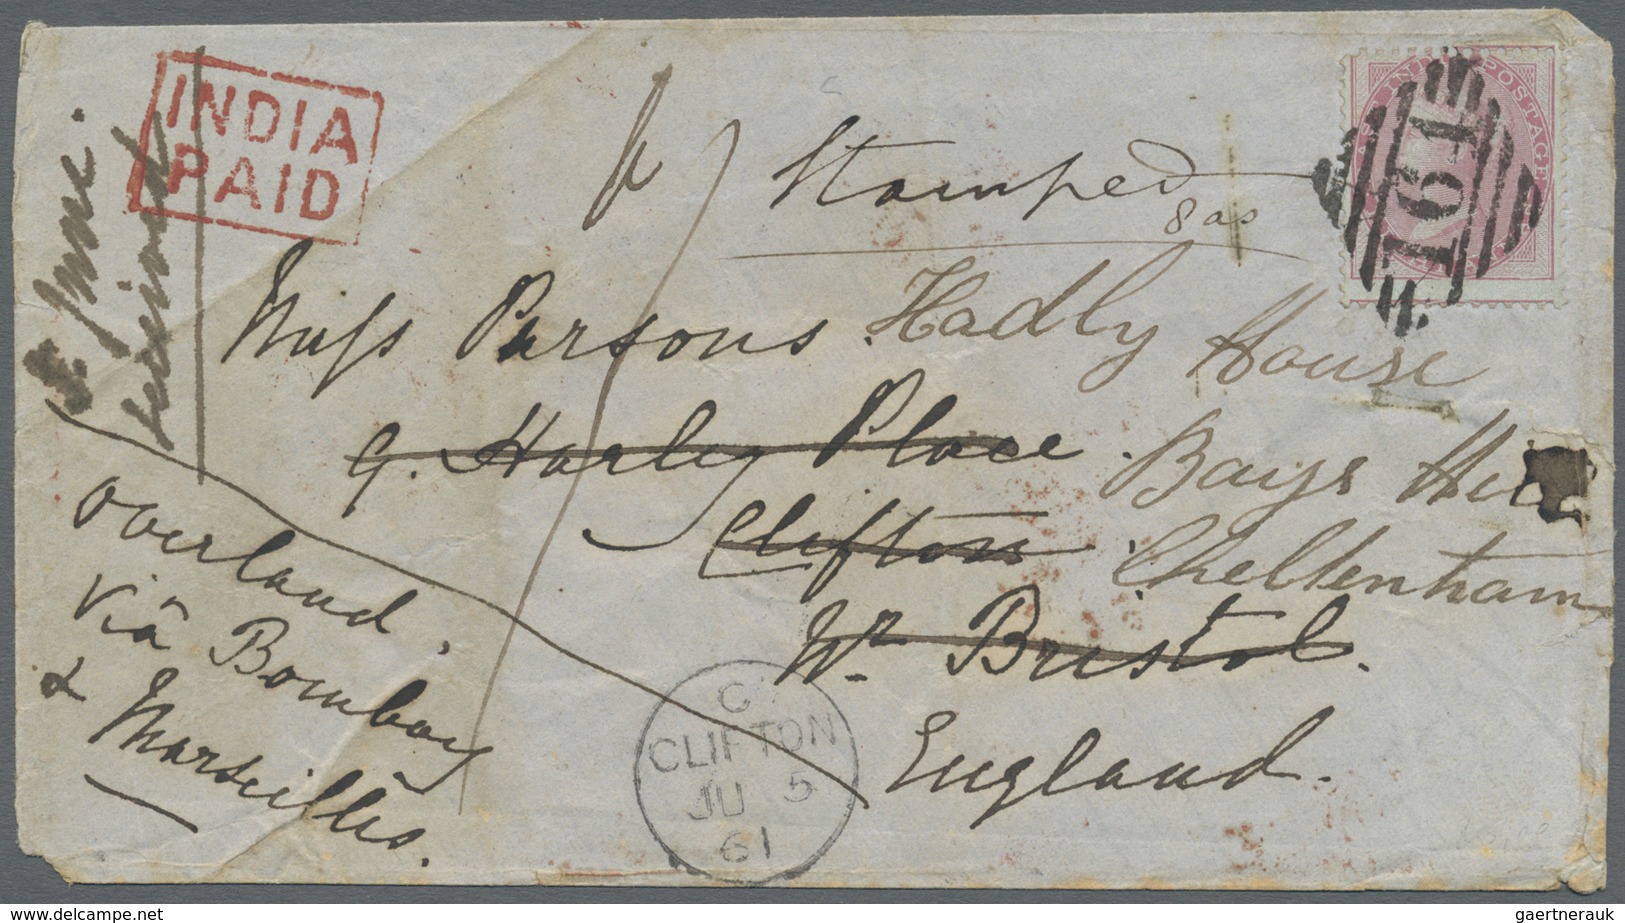 INDIA
PAID
Stamped
8 as
INDIA POSTAGE
161
Miss Parsons
Hadly House
9. Harley Place.
Bays Hill
Clifton
Cheltenham
Nr. Bristol.
England.
received
overland.
viâ Bombay
& Marseilles.
CLIFTON
JU 5
61
www.delcampe.net
gaertnerauk